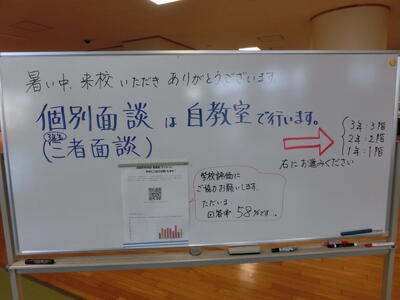 暑い中、来校いただき ありがとうございます
個別面談は自教室で行います。
(二者面談)
3年:3階
2年:2階
1年:1階
右にお進みください
学校評価に
ご協力お願いします。
ただいま
回答率 58%です…。